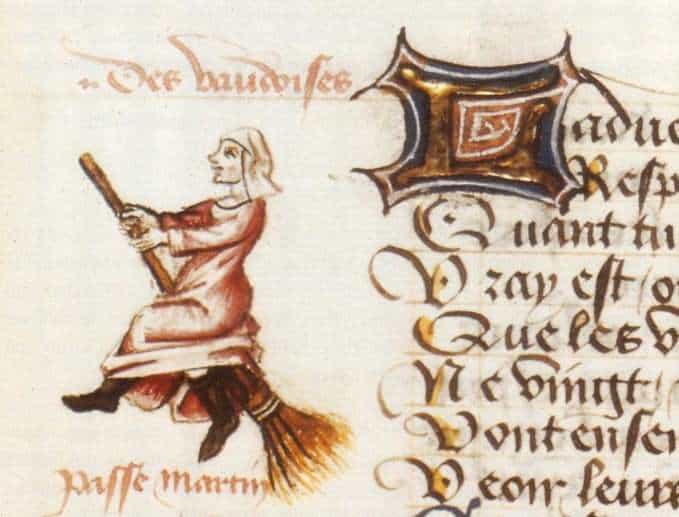 Des vaudoises
Ladue
Resp
Quant tu
Vray est / o
Que les v
Ne vingt
Vont ensem
Veoir leurs
passe martin